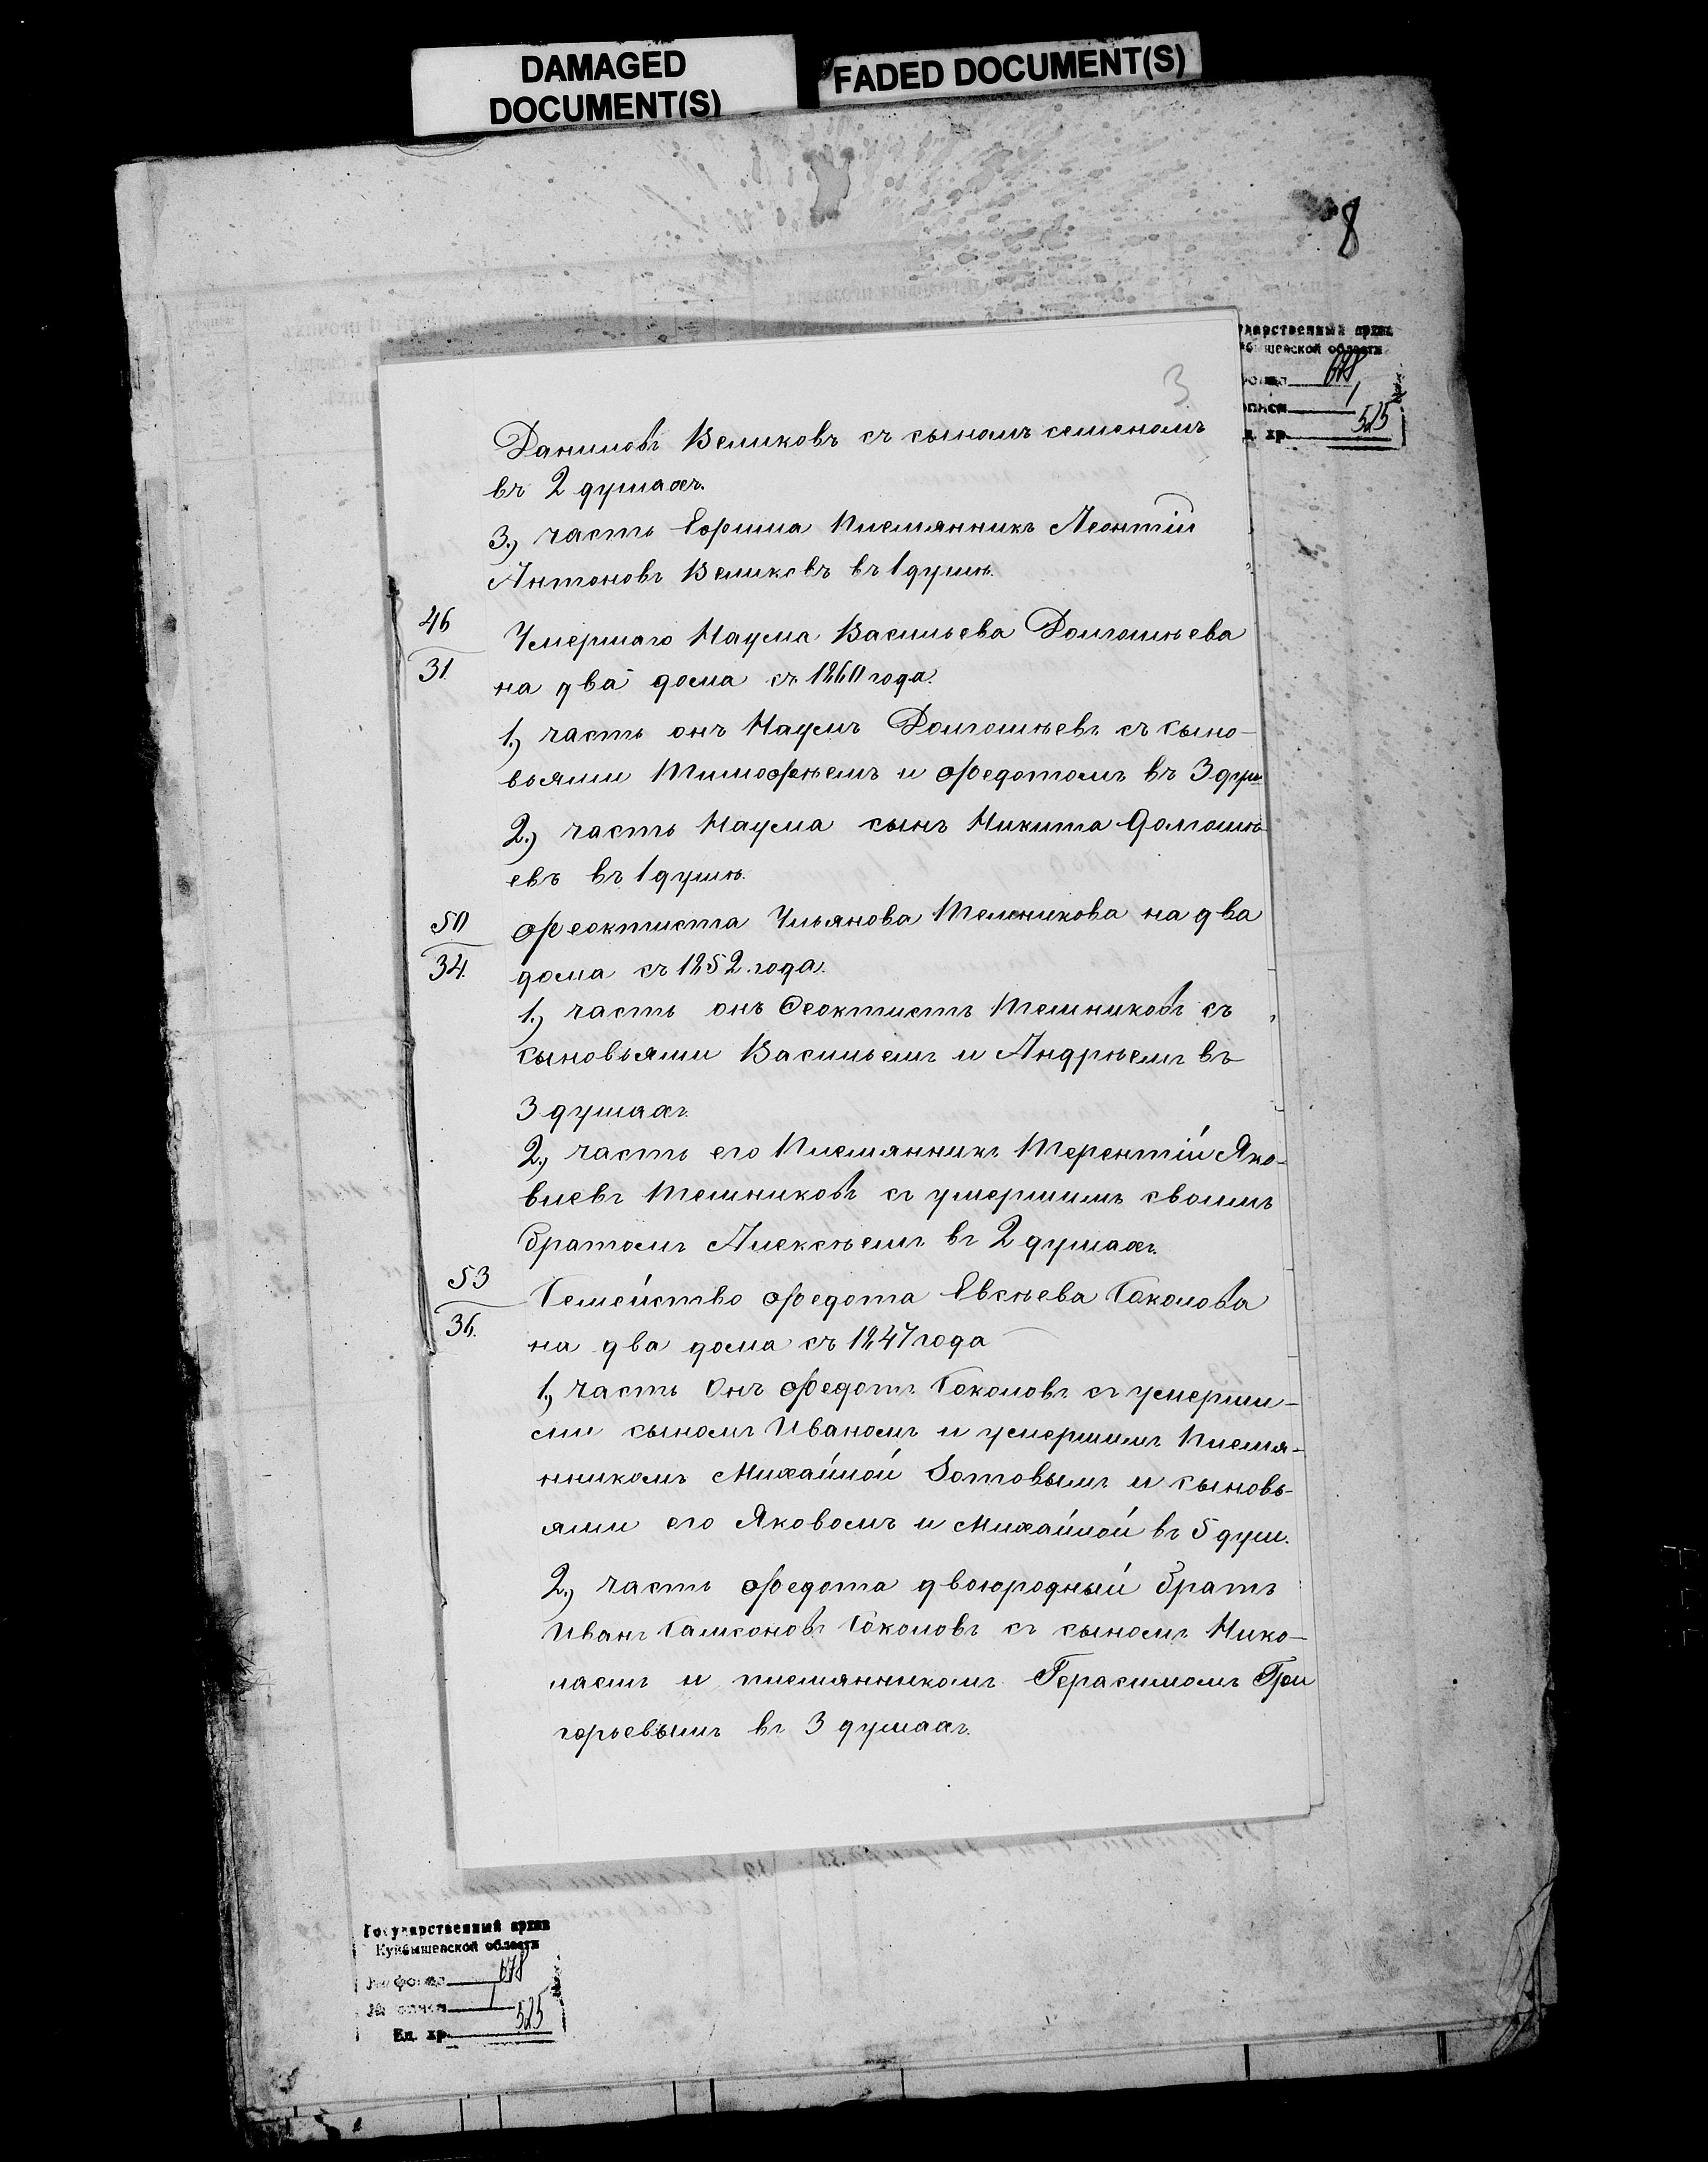 DAMAGED
DOCUMENT(S)
FADED DOCUMENT(S)
8
Государственный архив
Куйбышевской области
фонд 678
описи 1
Ед. хр. 525
3
Даниловъ Великовъ съ сыномъ семеномъ
въ 2 душахъ.
3.) часть Ефрима племянникъ Леонтій
Антоновъ Великовъ въ 1 душѣ.
46
31.
Умершаго Наума Васильева Долгошѣева
на два дома съ 1860 года.
1.) часть онъ Наумъ Долгошѣевъ съ сыно-
вьями Тимофѣемъ и Федотомъ въ 3 душ
2.) часть Наума сынъ Никита Долгошѣ-
евъ въ 1 душѣ.
50
34.
Феоктиста Ульянова Мельникова на два
дома съ 1852 года.
1.) часть онъ Феоктистъ Мельниковъ съ
сыновьями Васильемъ и Андрѣемъ въ
3 душахъ.
2.) часть его племянникъ Терентій Яко-
влевъ Мельниковъ съ умершимъ своимъ
братомъ Алексѣемъ въ 2 душахъ.
53
36.
Семейство Федота Евсѣева Соколова
на два дома съ 1847 года
1.) часть Онъ Федотъ Соколовъ съ умерши-
ми сыномъ Иваномъ и умершимъ племя-
нникомъ Михайлой Зотовымъ и сыновь-
ями его Яковомъ и Михайлой въ 5 душ.
2.) часть Федота двоюродный братъ
Иванъ Самсоновъ Соколовъ съ сыномъ Нико-
лаемъ и племянникомъ Герасимомъ Гри
горьевымъ въ 3 душахъ.
Государственный архив
Куйбышевской области
№ фонда 678
№ описи 1
Ед. хр. 525